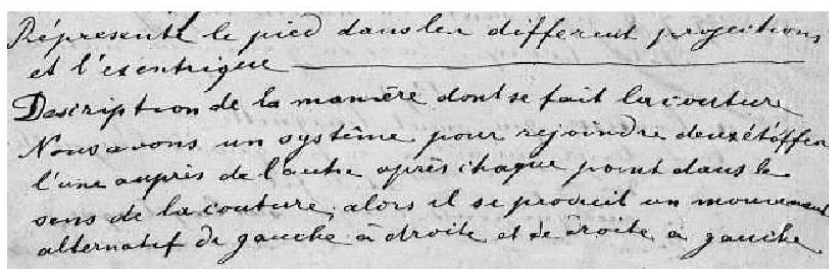 Réprésente le pied dans les different projections
et l'esentrique
Description de la manière dont se fait la couture
Nous avons un système pour rejoindre deux étóffes
l'une auprès de l'autre après chaque point dans le
sens de la couture, alors il se produit un mouvement
alternatif de gauche à droite et de droite à gauche